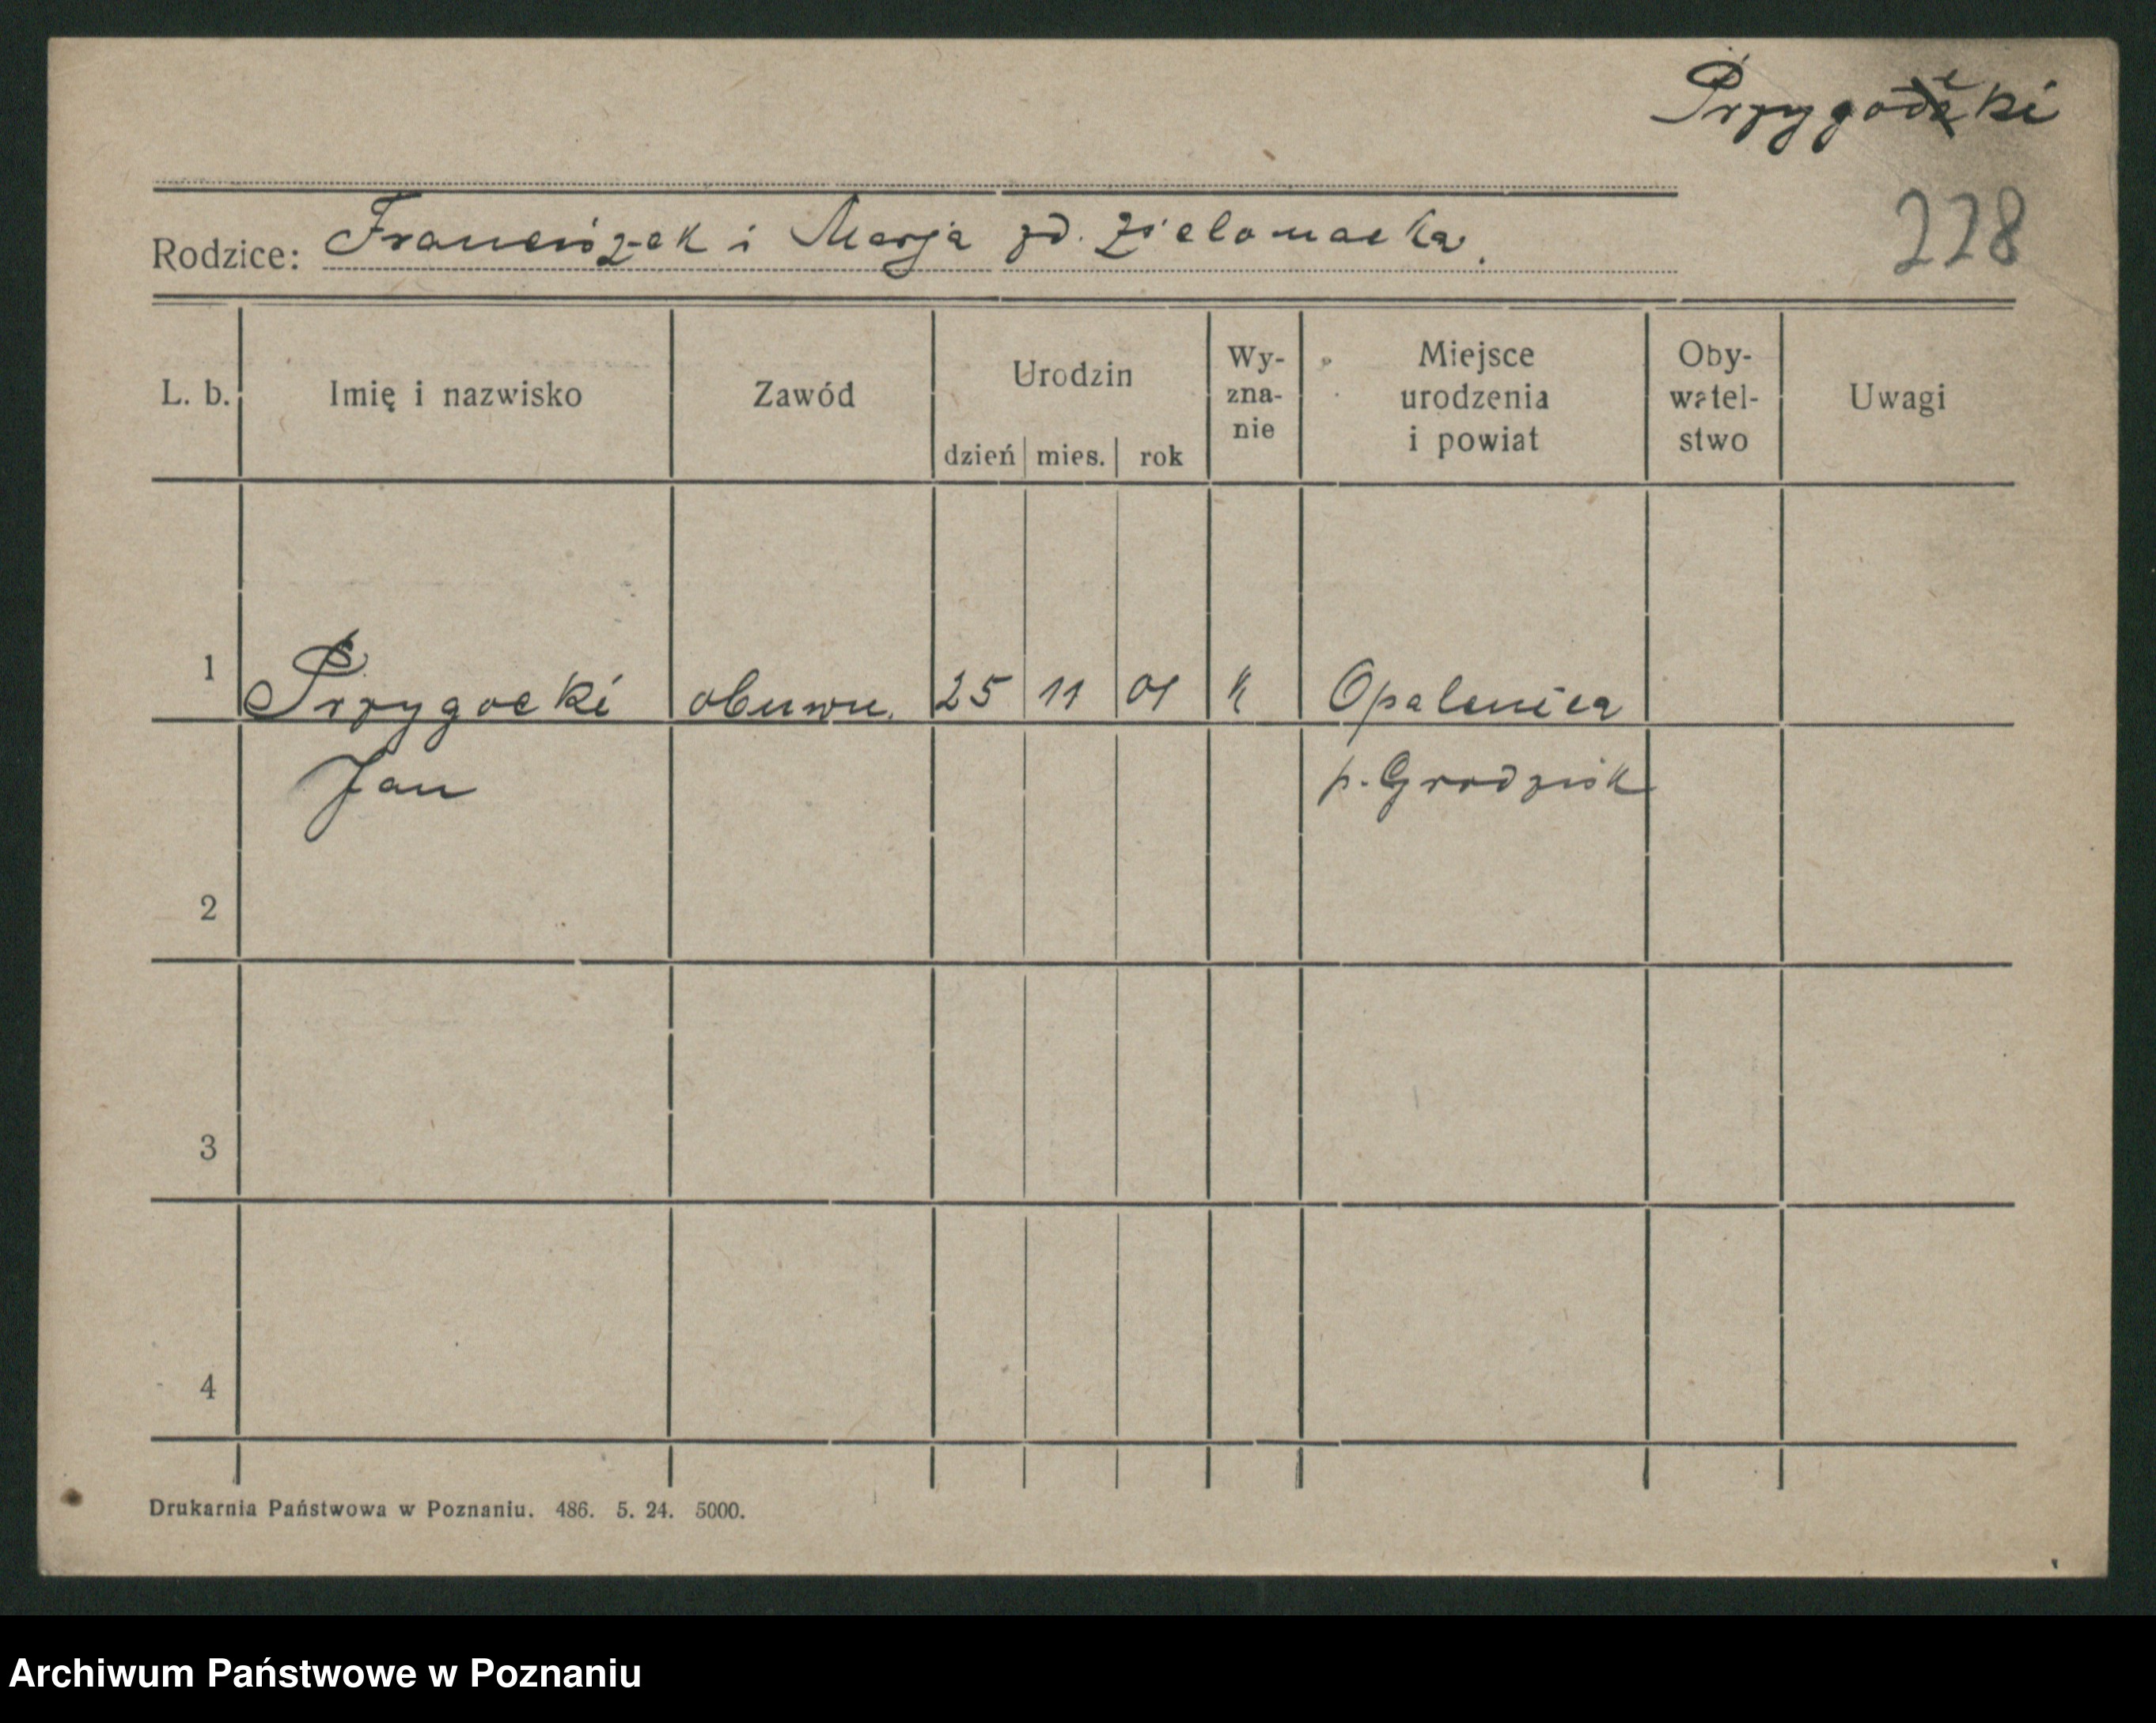 Przygocki
228
Rodzice: Franciszek i Marja zd. Zielonacka.
L. b. Imię i nazwisko Zawód Urodzin dzień mies. rok Wy-zna-nie Miejsce urodzenia i powiat Oby-watel-stwo Uwagi
1 Przygocki obuwn. 25 11 01 k Opalenica
Jan p. Grodzisk
2
3
4
Drukarnia Państwowa w Poznaniu. 486. 5. 24. 5000.
Archiwum Państwowe w Poznaniu